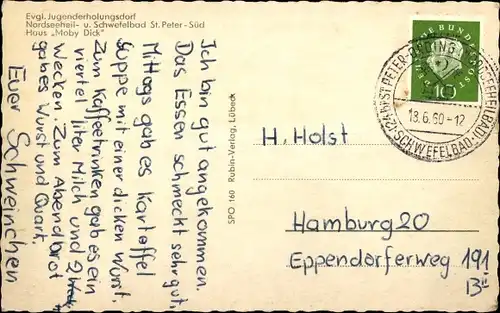 Evgl. Jugenderholungsdorf
Nordseeheil- u. Schwefelbad St. Peter-Süd
Haus „Moby Dick"
Ich bin gut angekommen.
Das Essen schmeckt sehr gut,
Mittags gab es Kartoffel
suppe mit einer dicken Wurst.
Zum Kaffeetrinken gab es ein
viertel liter Milch und 2
Wecken. Zum Abendbrot
gab es Wurst und Quark,
Euer Schweinchen
SPO 160 Rubin-Verlag, Lübeck
DEUTSCHE BUNDESPOST
10
(24b) ST. PETER-ORDING
18.6.60-12
SCHWEFELBAD
H. Holst
Hamburg 20
Eppendorferweg 191
B II